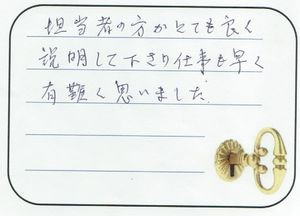 担当者の方がとても良く
説明して下さり仕事も早く
有難く思いました。